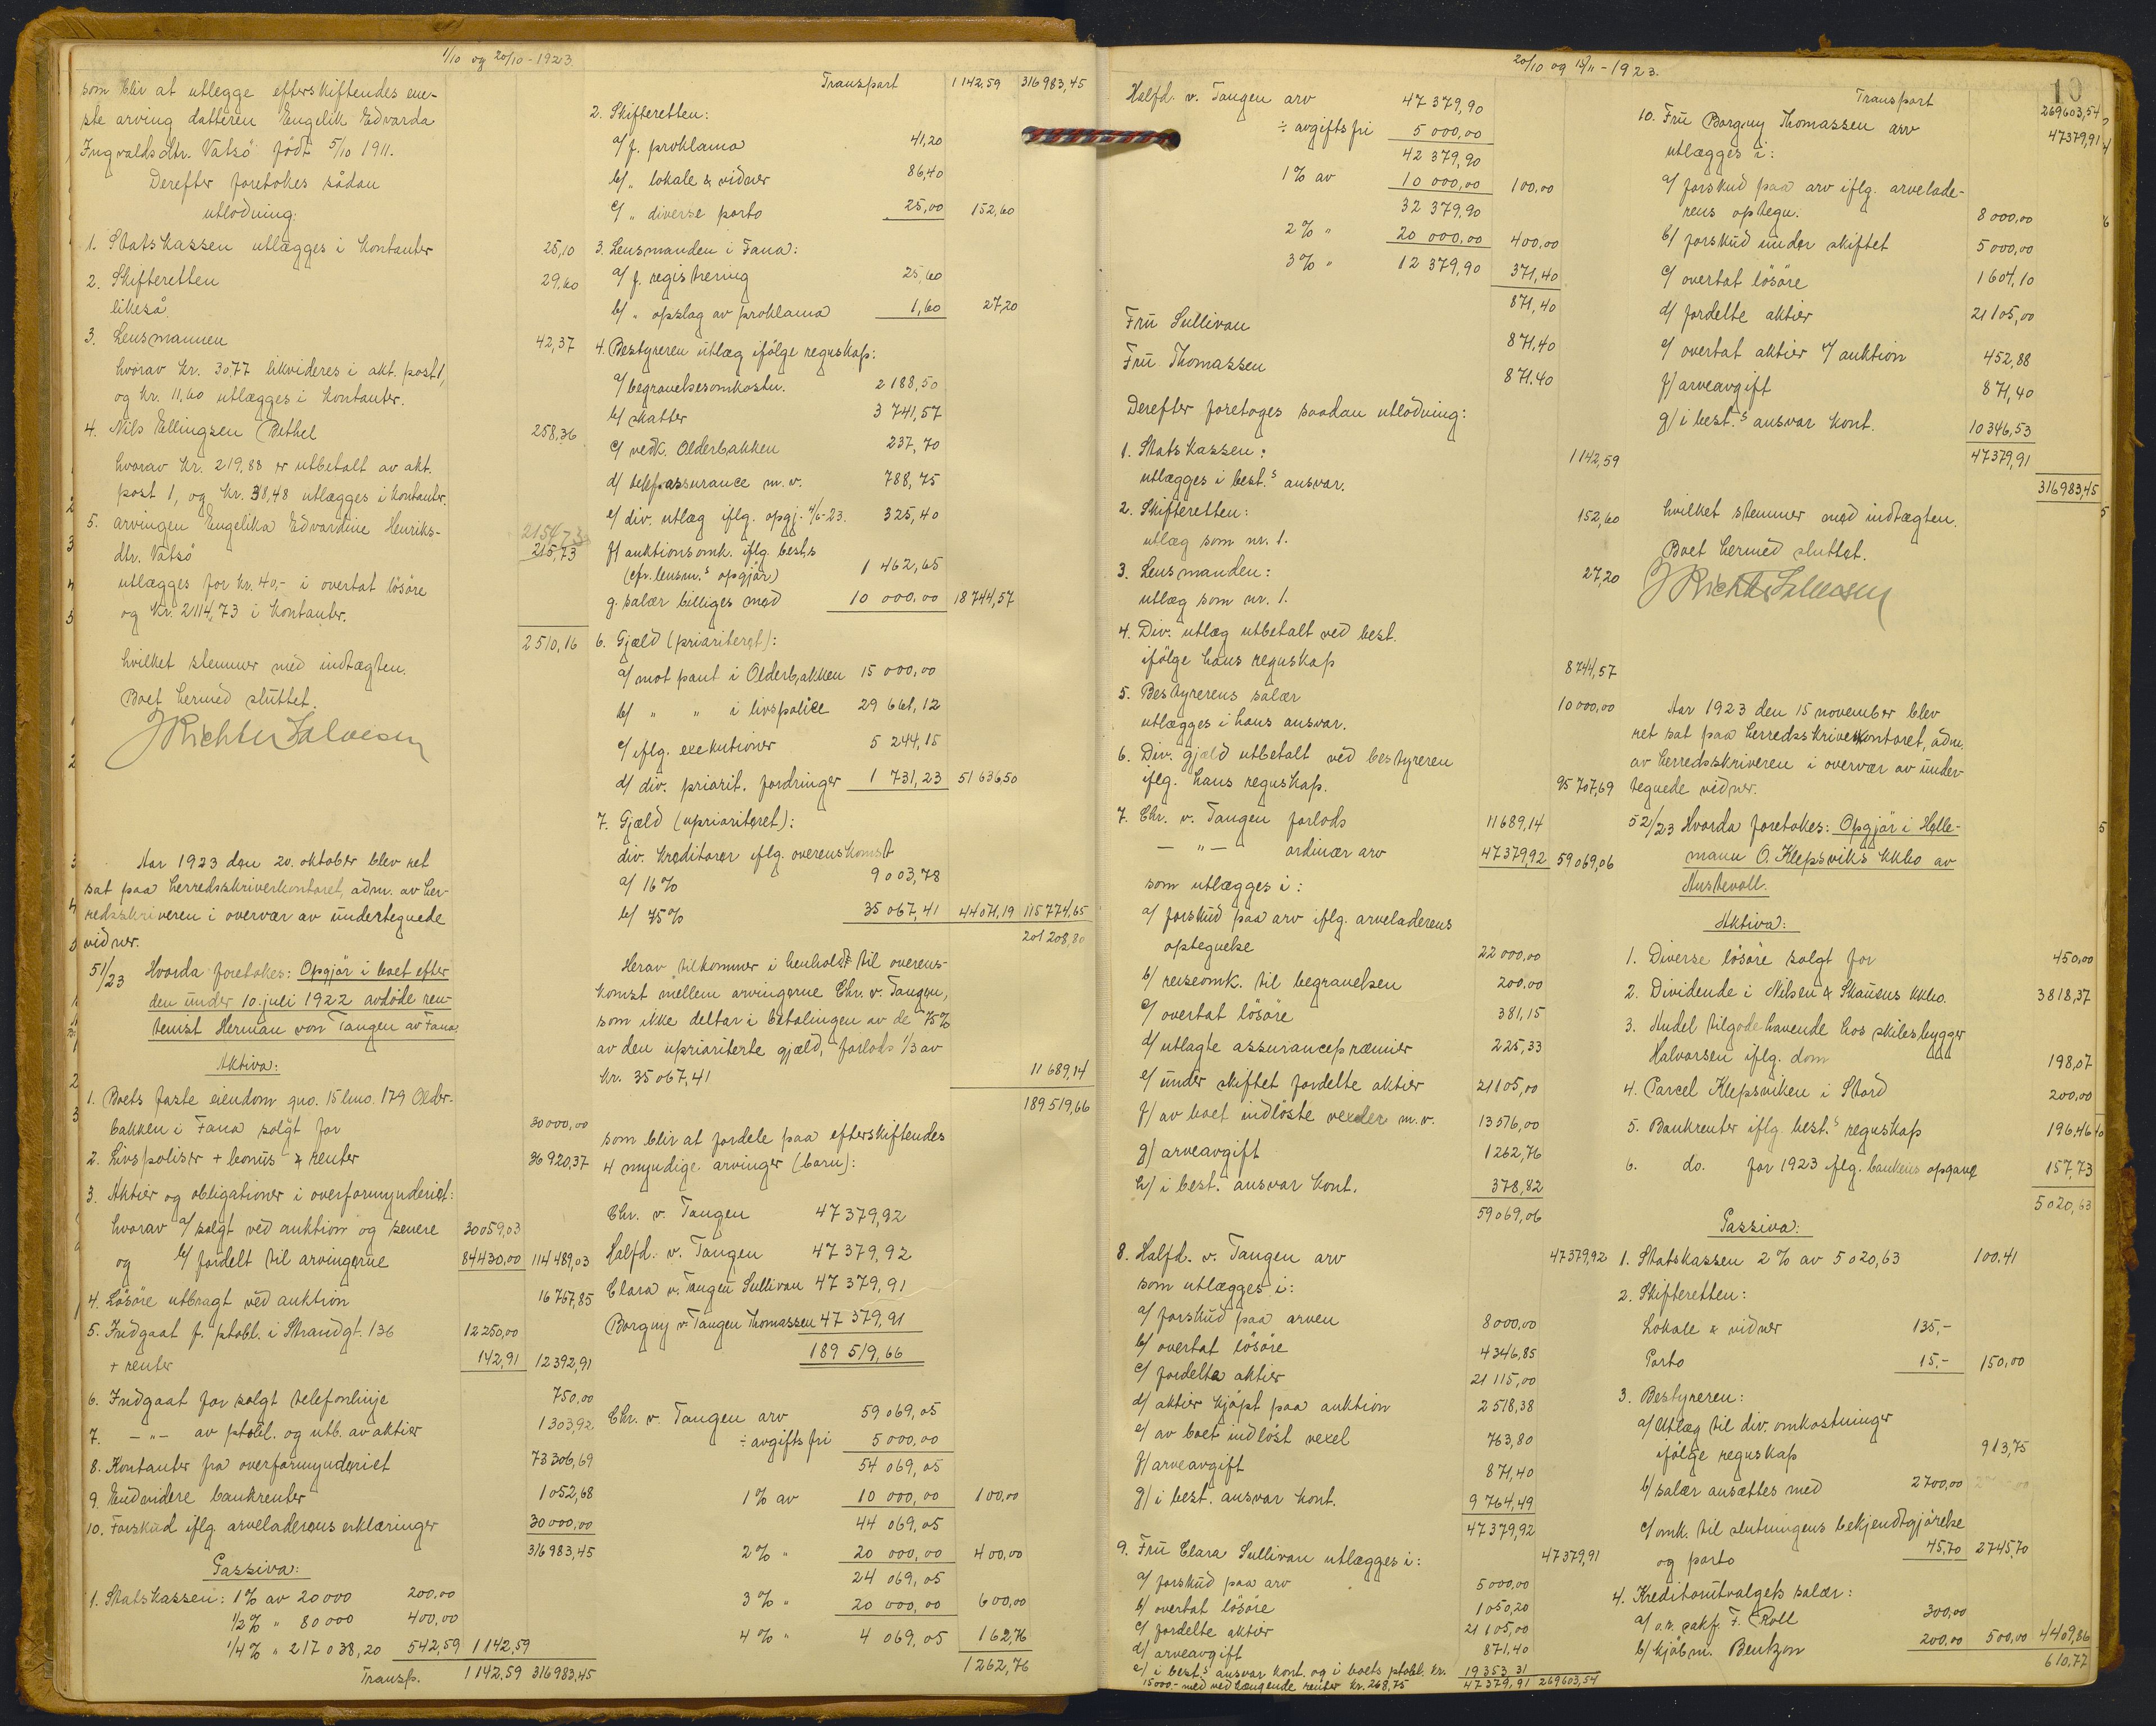 1/10 og 20/10 - 1923.
som blir at utlegge efterskiftendes ene-
ste arving datteren Engelik Edvarda
Ingvaldsdtr. Vatsö födt 5/10 1911.
Derefter foretokes sådan
utlodning:
1. Statskassen utlægges i kontanter 25,10
2. Skifteretten 29,60
likeså.
3. Lensmannen 42,37
hvorav kr. 30,77 likvideres i akt. post 1,
og kr. 11,60 utlægges i kontanter.
4. Nils Ellingsen Bethel 258,36
hvorav kr. 219,88 er utbetalt av akt.
post 1, og kr. 38,48 utlægges i kontanter.
5. arvingen Engelika Edvardine Henriks-
dtr. Vatsö 2154,73 215,73
utlægges for kr. 40,- i overtat lösöre
og kr. 2114,73 i kontanter.
2510,16
hvilket stemmer med indtægten.
Boet hermed sluttet.
J Richter Salvesen
Aar 1923 den 20. oktober blev ret
sat paa herredsskriverkontoret, adm. av her-
redsskriveren i overvær av undertegnede
vidner.
51/23 Hvorda foretokes: Opgjör i boet efter
den under 10. juli 1922 avdöde ren-
tenist Herman von Tangen av Fana.
Aktiva:
1. Boets faste eiendom gno. 15 bno. 179 Older-
bakken i Fana solgt for 30000,00
2. Livspoliser + bonus & renter 36920,37
3. Aktier og obligationer i overformynderiet:
hvorav a/ solgt ved auktion og senere 30059,03
og b/ fordelt til arvingerne 84430,00 114489,03
4. Lösöre utbragt ved auktion 16767,85
5. Indgaat f. ptobl. i Strandgt. 136 12250,00
+ renter 142,91 12392,91
6. Indgaat for solgt telefonlinje 750,00
7. - " - av ptobl. og utb. av aktier 1303,92
8. Kontanter fra overformynderiet 73306,69
9. Endvidere bankrenter 1052,68
10. Forskud iflg. arveladerens erklæringer 30000,00
316983,45
Passiva:
1. Statskassen: 1% av 20000 200,00
1/2% " 80000 400,00
1/4% " 217038,20 542,59 1142,59
Transp. 1142,59 316983,45
Transport 1142,59 316983,45
2. Skifteretten:
a/ f. proklama 41,20
b/ " lokale & vidner 86,40
c/ " diverse porto 25,00 152,60
3. Lensmanden i Fana:
a/ f. registrering 25,60
b/ " opslag av proklama 1,60 27,20
4. Bestyreren utlæg ifölge regnskap:
a/ begravelsesomkostn. 2188,50
b/ skatter 3741,57
c/ vedk. Olderbakken 237,70
d/ telf. assurance m. v. 788,75
e/ div. utlæg iflg. opgj. 4/6-23. 325,40
f/ auktionsomk. iflg. best.s
(cfr. lensm.s opgjör) 1462,65
g. salær billiges med 10000,00 18744,57
6. Gjæld (prioriteret):
a/ mot pant i Olderbakken 15000,00
b/ " " i livspolice 29661,12
c/ iflg. exekutioner 5244,15
d/ div. priorit. fordringer 1731,23 51636,50
7. Gjæld (uprioriteret):
div. kreditorer iflg. overenskomst
a/ 16% 9003,78
b/ 75% 35067,41 44071,19 115774,65
201208,80
Herav tilkommer i henhold til overens-
komst mellem arvingerne Chr. v. Tangen,
som ikke deltar i betalingen av de 75%
av den uprioriterte gjæld, forlods 1/3 av
kr. 35067,41 11689,14
189519,66
som blir at fordele paa efterskiftendes
4 myndige arvinger (barn):
Chr. v. Tangen 47379,92
Halfd. v. Tangen 47379,92
Clara v. Tangen Sullivan 47379,91
Borgny v. Tangen Thomassen 47379,91
189519,66
Chr. v. Tangen arv 59069,05
÷ avgiftsfri 5000,00
54069,05
1% av 10000,00 100,00
44069,05
2% " 20000,00 400,00
24069,05
3% " 20000,00 600,00
4% " 4069,05 162,76
1262,76
20/10 og 15/11 - 1923.
10
Halfd. v. Tangen arv 47379,90
÷ avgiftsfri 5000,00
42379,90
1% av 10000,00 100,00
32379,90
2% " 20000,00 400,00
3% " 12379,90 371,40
871,40
Fru Sullivan 871,40
Fru Thomassen 871.40
Derefter foretoges saadan utlodning:
1. Statskassen: 1142,59
utlægges i best.s ansvar.
2. Skifteretten: 152,60
utlæg som nr. 1.
3. Lensmanden: 27,20
utlæg som nr. 1.
4. Div. utlæg utbetalt ved best.
ifölge hans regnskap 8744,57
5. Bestyrerens salær 10000,00
utlægges i hans ansvar.
6. Div. gjæld utbetalt ved bestyreren
iflg. hans regnskap. 95707,69
7. Chr. v. Tangen forlods 11689,14
- " - ordinær arv 47379,92 59069,06
som utlægges i:
a/ forskud paa arv iflg. arveladerens
optegnelse 22000,00
b/ reiseomk. til begravelsen 200,00
c/ overtat lösöre 381,15
d/ utlagte assurancepræmier 225,33
e/ under skiftet fordelte aktier 21105,00
f/ av boet indlöste vexler m. v. 13576,00
g/ arveavgift 1262,76
h/ i best. ansvar kont. 378,82
59069,06
8. Halfd. v. Tangen arv 47379,92
som utlægges i:
a/ forskud paa arven 8000,00
b/ overtat lösöre 4346,85
c/ fordelte aktier 21115,00
d/ aktier kjöpt paa auktion 2518,38
e/ av boet indlöst vexel 763,80
f/ arveavgift 871,40
g/ i best. ansvar kont. 9764,49
47379,92
9. Fru Clara Sullivan utlægges i: 47379,91
a/ forskud paa arv 5000,00
b/ overtat lösöre 1050,20
c/ fordelte aktier 21105,00
d/ arveavgift 871,40
e/ i best.s ansvar kont. og i boets ptobl. kr.
15000,- med vedhængende renter kr. 268,75 19353,31
47379,91 269603,54
Transport 269603,54
10. Fru Borgny Thomassen arv 47379,91
utlægges i:
a/ forskud paa arv iflg. arvelade-
rens optegn. 8000,00
b/ forskud under skiftet 5000,00
c/ overtat lösöre 1604,10
d/ fordelte aktier 21105,00
e/ overtat aktier v/ auktion 452,88
f/ arveavgift 871,40
g/ i best.s ansvar kont. 10346,53
47379,91
316983,45
hvilket stemmer med indtægten.
Boet hermed sluttet.
J Richter Salvesen
Aar 1923 den 15 november blev
ret sat paa herredsskriverkontoret, adm.
av herredsskriveren i overvær av under-
tegnede vidner.
52/23 Hvorda foretokes: Opgjör i Helle-
mann O. Klepsviks kkbo av
Austevoll.
Aktiva:
1. Diverse lösöre solgt for 450,00
2. Dividende i Nilsen & Skauens kkbo. 3818,37
3. Andel tilgodehavende hos skibsbygger
Halvorsen iflg. dom 198,07
4. Parcel Klepsviken i Stord 200,00
5. Bankrenter iflg. best.s regnskap 196,46
6. do. for 1923 iflg. bankens opgave 157,73
5020,63
Passiva:
1. Statskassen 2% av 5020,63 100.41
2. Skifteretten:
Lokale & vidner 135,-
Porto 15,- 150,00
3. Bestyreren:
a/ Utlæg til div. omkostninger
ifölge regnskap 913,75
b/ salær ansættes med 2700,00
c/ omk. til slutningens bekjendtgjörelse
og porto 45,70 2745,70
4. Kreditorutvalgets salær:
a/ o.r. sakf. F. Roll 300,00
b/ kjöbm. Bentzon 200,00 500,00 4409,86
610,77